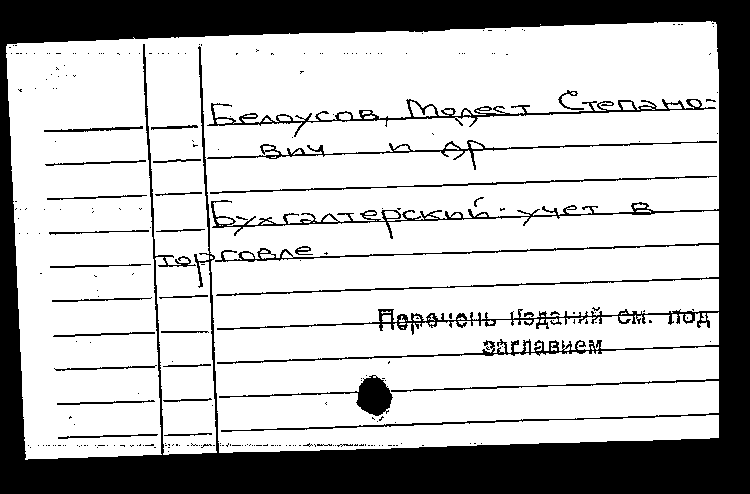 Белоусов, Модест Степано-
вич и др
Бухгалтерский учет в
торговле.
Перечень изданий см. под
заглавием